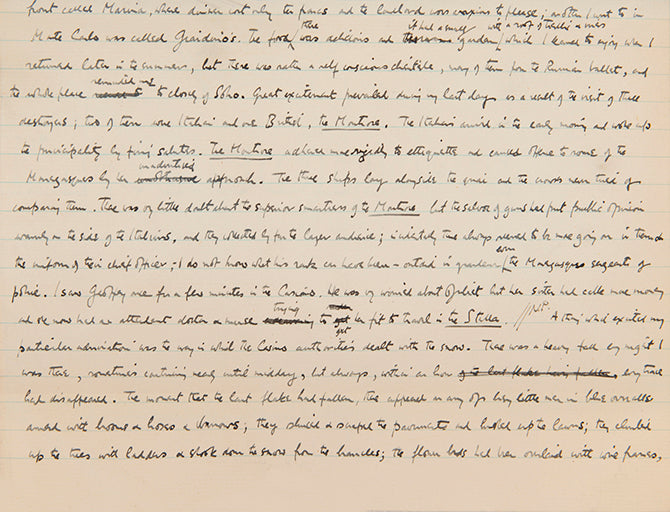 front called Marina, where dinner cost only ten francs and the landlord was anxious to please; another I went to in
there it had a small with a roof of trellis & vines
Monte Carlo was called Giardino's. The food was delicious and garden which I learned to enjoy when I
returned later in the summer, but there was rather a self conscious clientele, many of them from the Russian ballet, and
reminded me
the whole place too closely of Soho. Great excitement prevailed during my last days as a result of the visit of three
destroyers; two of them were Italian and one British, the Montrose. The Italians arrived in the early morning and woke up
the principality by firing salutes. The Montrose adhered more rigidly to etiquette and caused offence to some of the
unadvertised
Monegasques by her approach. The three ships lay alongside the quai and the crowds never tired of
comparing them. There was very little doubt about the superior smartness of the Montrose. but the salvoes of guns had put public opinion
warmly on the side of the Italians, and they collected by far the larger audience; incidentally there always seemed to be more going on in them &
even
the uniform of their chief officer, - I do not know what his rank can have been - outshone in grandeur the Monegasque sergeants of
police. I saw Geoffrey once for a few minutes in the Casino. He was very worried about Juliet but her sister had cabled more money
trying
and he now had an attendant doctor & nurse to get her fit to travel in the Stella. // N.P. A thing which excited my
get
particular admiration was the way in which the Casino authorities dealt with the snow. There was a heavy fall every night I
was there, sometimes continuing nearly until midday, but always, within an hour of the last flake having fallen, every trace
had disappeared. The moment that the last flake had fallen, there appeared an army of busy little men in blue overalls
armed with brooms & hoses & barrows; they sluiced & scraped the pavements and brushed up the lawns; they climbed
up the trees with ladders & shook down the snow from the branches; the flower beds had been overlaid with wire frames,